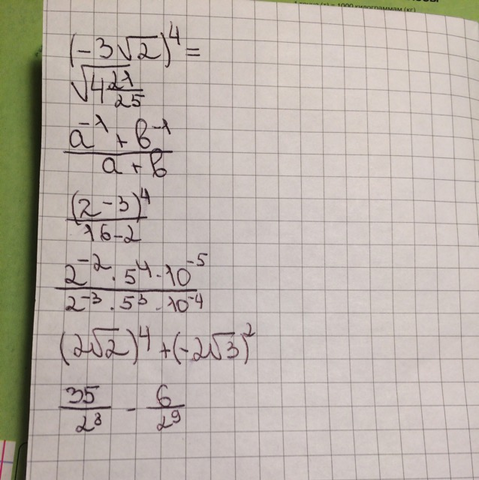 (-3√2)⁴=
√(4 21/25)
(a⁻¹ + b⁻¹)/(a + b)
(2-3)⁴/(16-2)
(2⁻² · 5⁴ · 10⁻⁵)/(2⁻³ · 5³ · 10⁻⁴)
(2√2)⁴ + (-2√3)²
35/2⁸ - 6/2⁹